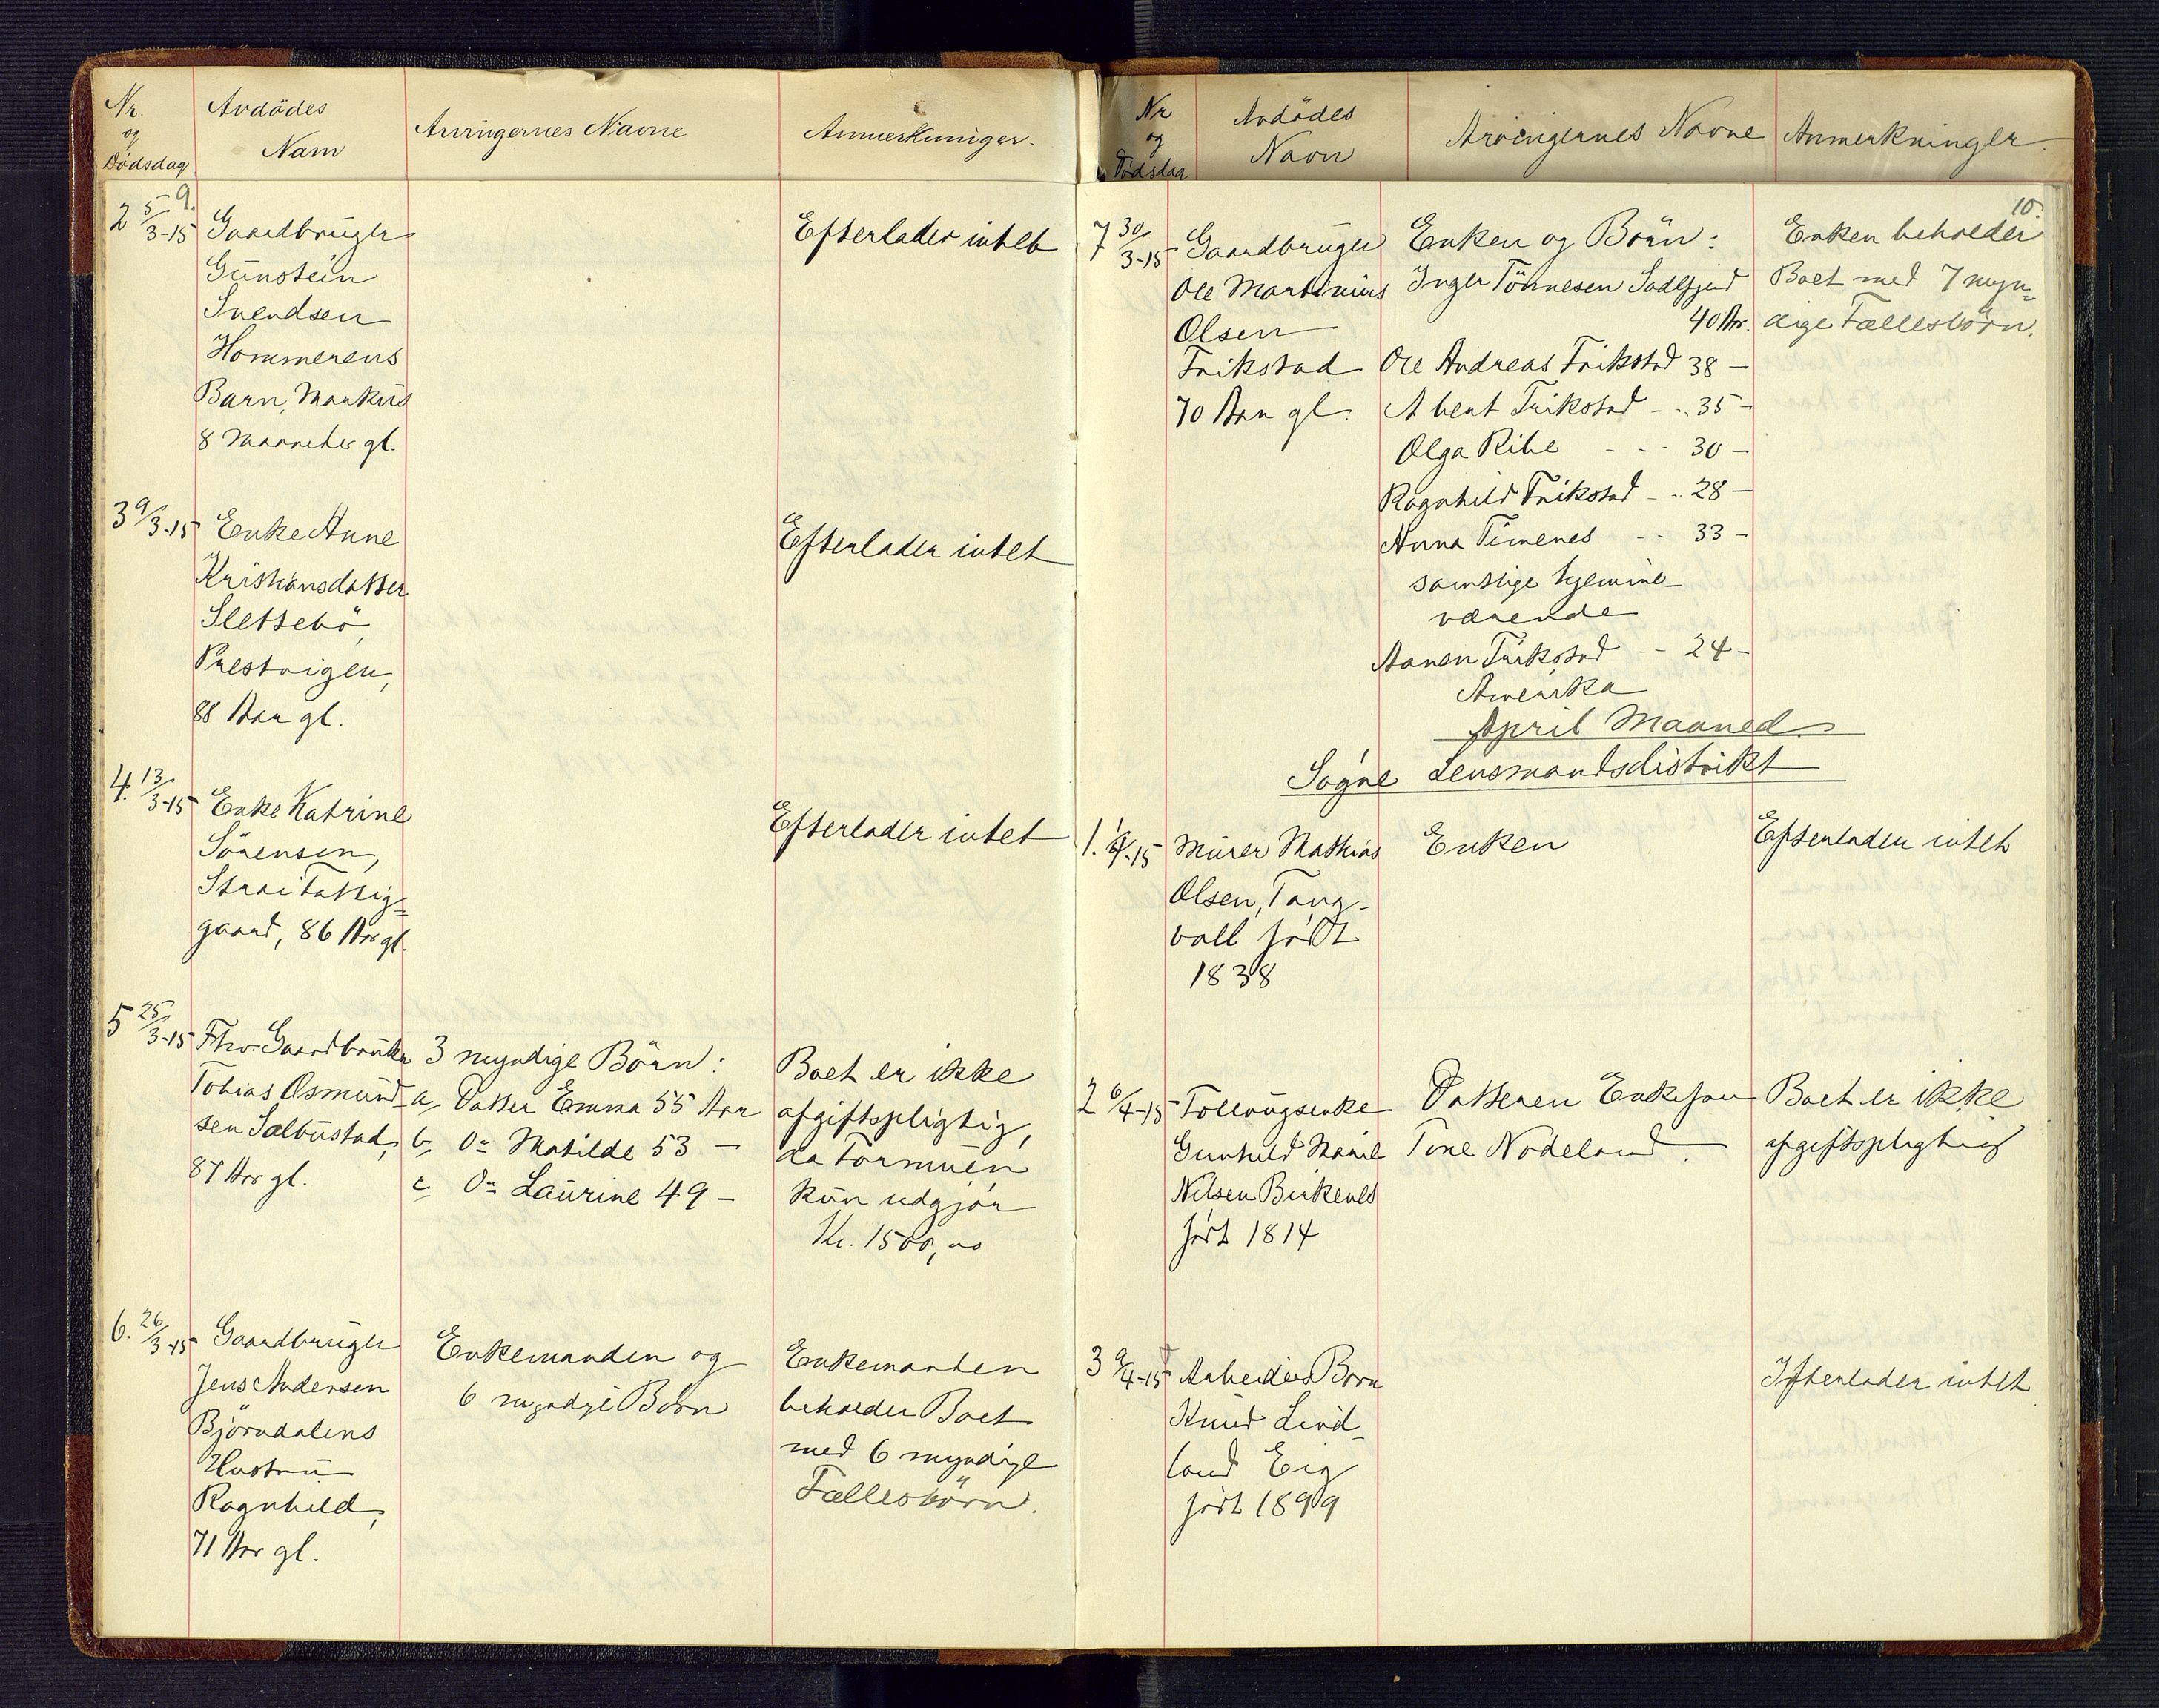 Nr.
og
Dödsdag
Avdödes
Navn
Arvingernes Navne
Anmerkninger.
9.
2 5/3-15 Gaardbruger
Gunstein
Svendsen
Hommerens
Barn, Markus
8 Maaneder gl.
Efterlader intet
3 9/3-15 Enke Anne
Kristiansdatter
Slettebö,
Prestvigen,
88 Aar gl.
Efterlader intet
4. 13/3-15 Enke Katrine
Sörensen,
Strai Fattig=
gaard, 86 Aar gl.
Efterlader intet
5 25/3-15 Fhv. Gaardbruker
Tobias Osmund-
sen Salbustad,
87 Aar gl.
3 myndige Börn:
a, Datter Emma 55 Aar
b, Do Matilde 53 —
c, Do Laurine 49 —
Boet er ikke
afgiftspligtig,
da Formuen
kun udgjör
Kr. 1500,00
6. 26/3-15 Gaardbruger
Jens Andersen
Björndalens
Hustru
Ragnhild,
71 Aar gl.
Enkemanden og
6 myndige Börn
Enkemanden
beholder Boet
med 6 myndige
Fællesbörn.
Nr
og
Dödsdag
Avdödes
Navn
Arvingernes Navne
Anmerkninger.
10.
7 30/3-15 Gaardbruger
Ole Martinius
Olsen
Frikstad
70 Aar gl.
Enken og Börn:
Inger Tönnesen
40 Aar.
Ole Andreas Frikstad 38 —
Abent Frikstad - .. 35 -
Olga Ribe - - - 30 —
Ragnhild Frikstad - .. 28 —
Anna Timenes - - 33 -
samtlige hjemme-
værende
Aanen Frikstad - - 24 -
Amerika
Enken beholder
Boet med 7 myn=
dige Fællesbörn.
April Maaned
Sögne Lensmandsdistrikt
1. 1/4-15 Murer Mathias
Olsen, Tang-
vall född
1838
Enken
Efterlader intet
2 6/4-15
Gunhild Marie
Nilsen Birkenes
född 1814
Datteren Enkefru
Tine Nodeland.
Boet er ikke
afgiftspligtig
3 9/4-15 Arbeider Barn
Knud Lind-
land Eig
född 1899
Efterlader intet